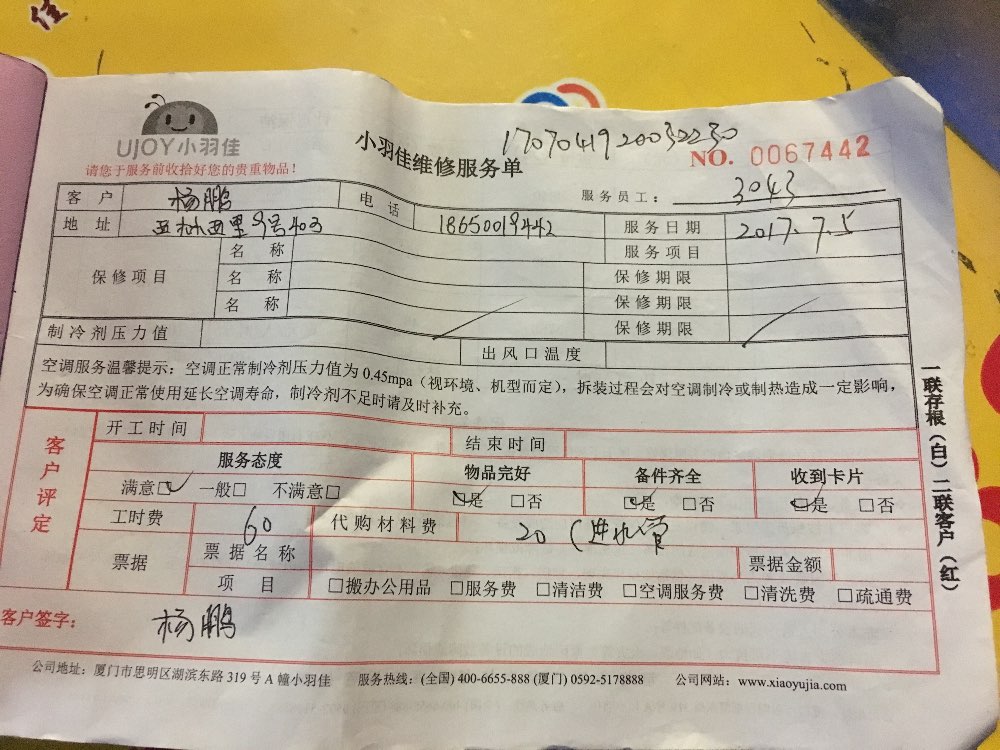 佳
UJOY小羽佳
请您于服务前收拾好您的贵重物品！
小羽佳维修服务单
1707041920032230
NO. 0067442
服务员工： 3043
客 户 杨鹏 电 话 18650019442 服务日期 2017.7.5
地 址 西林西里9号403 服务项目
保修项目 名 称 保修期限
名 称 保修期限
名 称 保修期限
制冷剂压力值 出风口温度
空调服务温馨提示：空调正常制冷剂压力值为 0.45mpa（视环境、机型而定），拆装过程会对空调制冷或制热造成一定影响，
为确保空调正常使用延长空调寿命，制冷剂不足时请及时补充。
客户评定
开工时间 结束时间
服务态度 物品完好 备件齐全 收到卡片
满意☑ 一般☐ 不满意☐ ☑是 ☐否 ☑是 ☐否 ☑是 ☐否
工时费 60 代购材料费 20（进水管
票据 票据名称 票据金额
项 目 ☐搬办公用品 ☐服务费 ☐清洁费 ☐空调服务费 ☐清洗费 ☐疏通费
客户签字： 杨鹏
公司地址：厦门市思明区湖滨东路 319 号 A 幢小羽佳 服务热线：(全国) 400-6655-888 (厦门) 0592-5178888 公司网站：www.xiaoyujia.com
一联存根（白）二联客户（红）